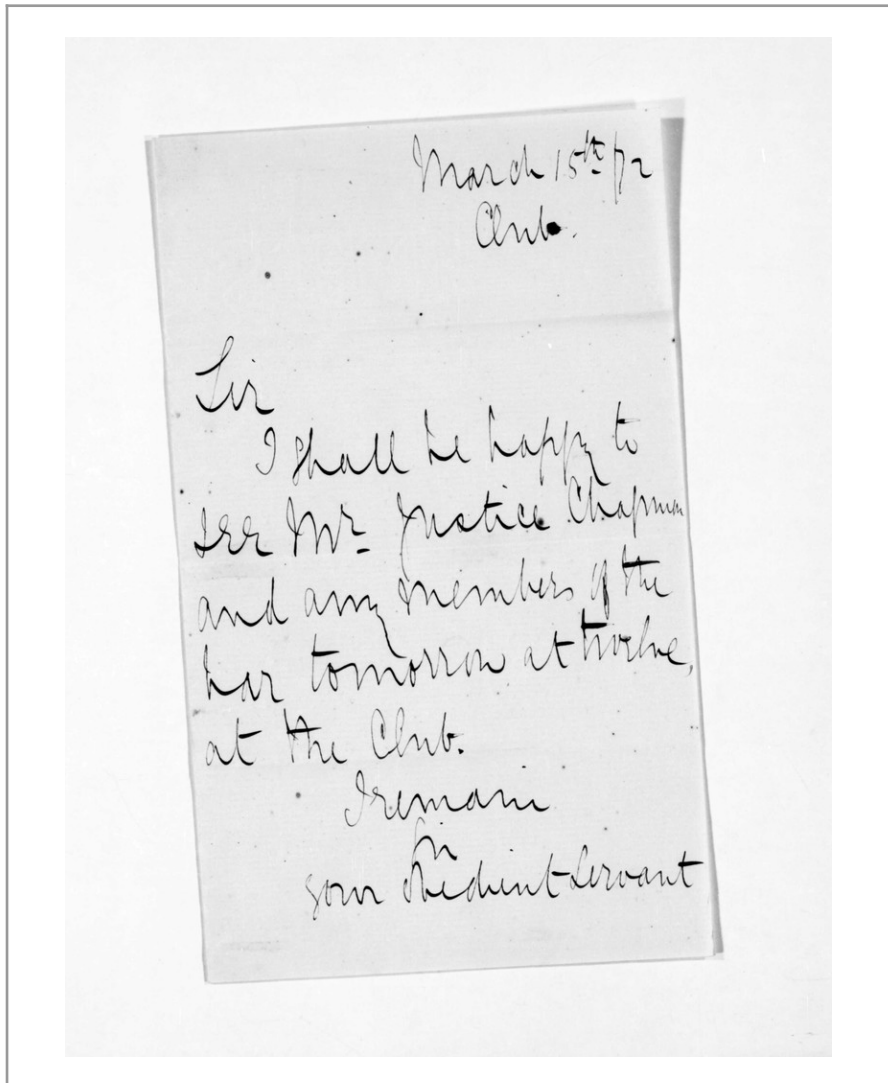 March 15th /72
Club.
Sir
I shall be happy to
see Mr. Justice Chapman
and any members of the
bar tomorrow at twelve,
at the Club.
I remain
Sir
your obedient servant